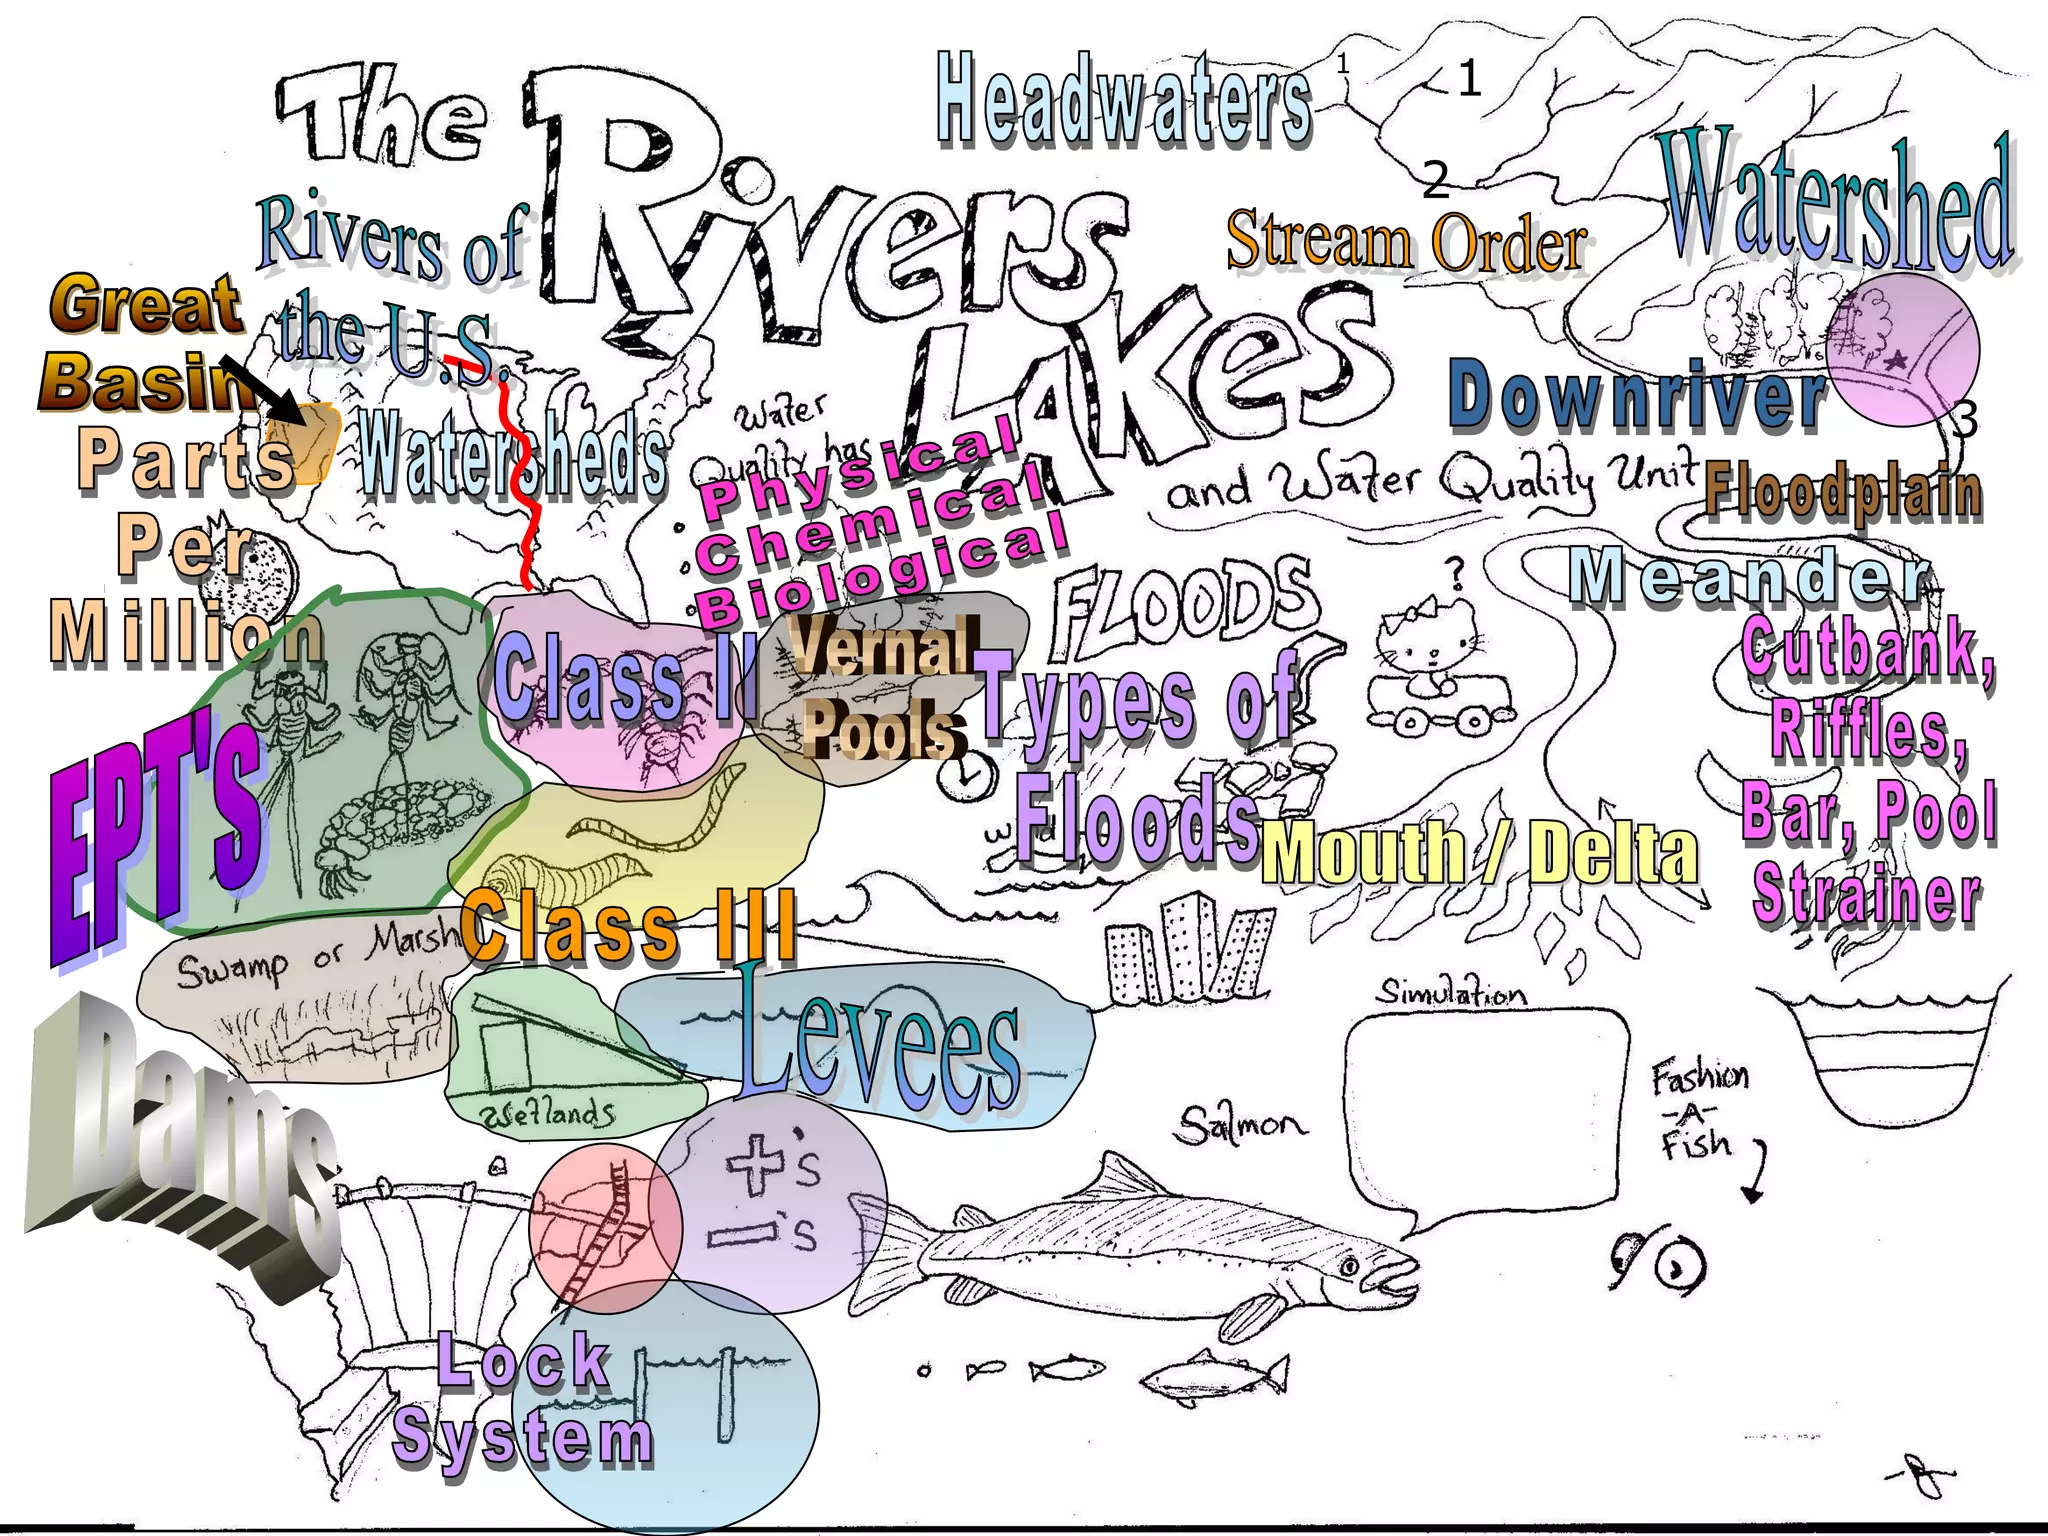 The Rivers
Lakes
and Water Quality Unit
Headwaters
1
1
2
3
Watershed
Stream Order
Rivers of
the U.S.
Great
Basin
Watersheds
Parts
Per
Million
Water
Quality has
Physical
Chemical
Biological
Downriver
Floodplain
Meander
FLOODS
?
Cutbank,
Riffles,
Bar, Pool
Strainer
Class II
Vernal
Pools
Types of
Floods
Mouth / Delta
EPT's
Class III
Swamp or Marsh
Levees
Wetlands
Dams
+'s
-'s
Simulation
Salmon
Fashion
-A-
Fish
Lock
System